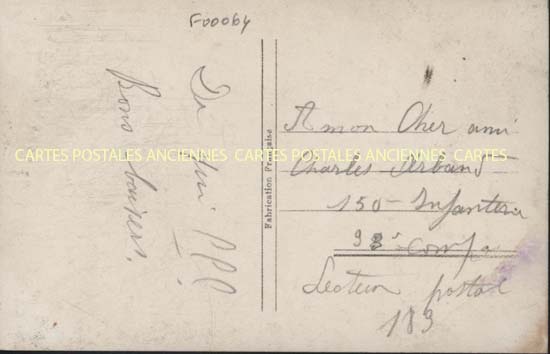 F00064
De
Bons baisers.
Fabrication Française
A mon Cher ami
Charles
150 - Infanterie
comp
Secteur postal
183
CARTES POSTALES ANCIENNES CARTES POSTALES ANCIENNES CARTES